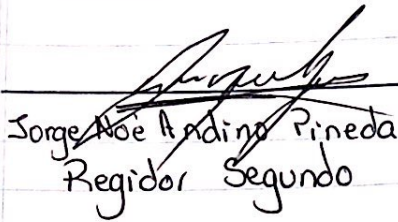 Jorge Noé Andino Pineda
Regidor Segundo